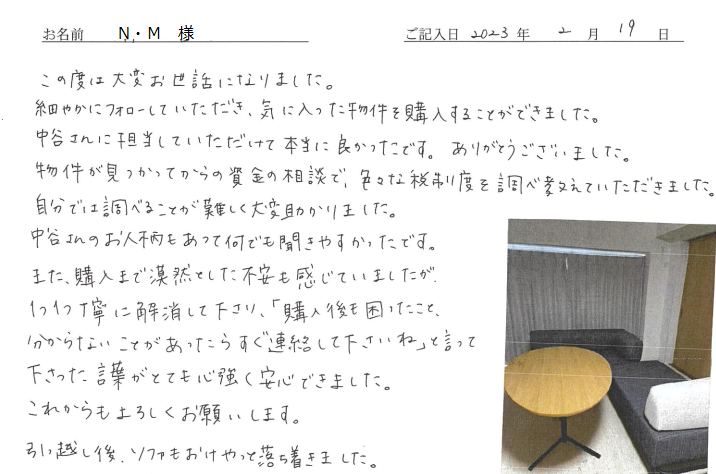 お名前 N・M 様 ご記入日 2023 年 2 月 19 日
この度は大変お世話になりました。
細やかにフォローしていただき、気に入った物件を購入することができました。
中谷さんに担当していただけて本当に良かったです。ありがとうございました。
物件が見つかってからの資金の相談で、色々な税制度を調べ教えていただきました。
自分では調べることが難しく大変助かりました。
中谷さんのお人柄もあって何でも聞きやすかったです。
また、購入まで漠然とした不安も感じていましたが、
1つ1つ丁寧に解消して下さり、「購入後も困ったこと、
分からないことがあったらすぐ連絡して下さいね」と言って
下さった言葉がとても心強く安心できました。
これからもよろしくお願いします。
引っ越し後、ソファもおけやっと落ち着きました。